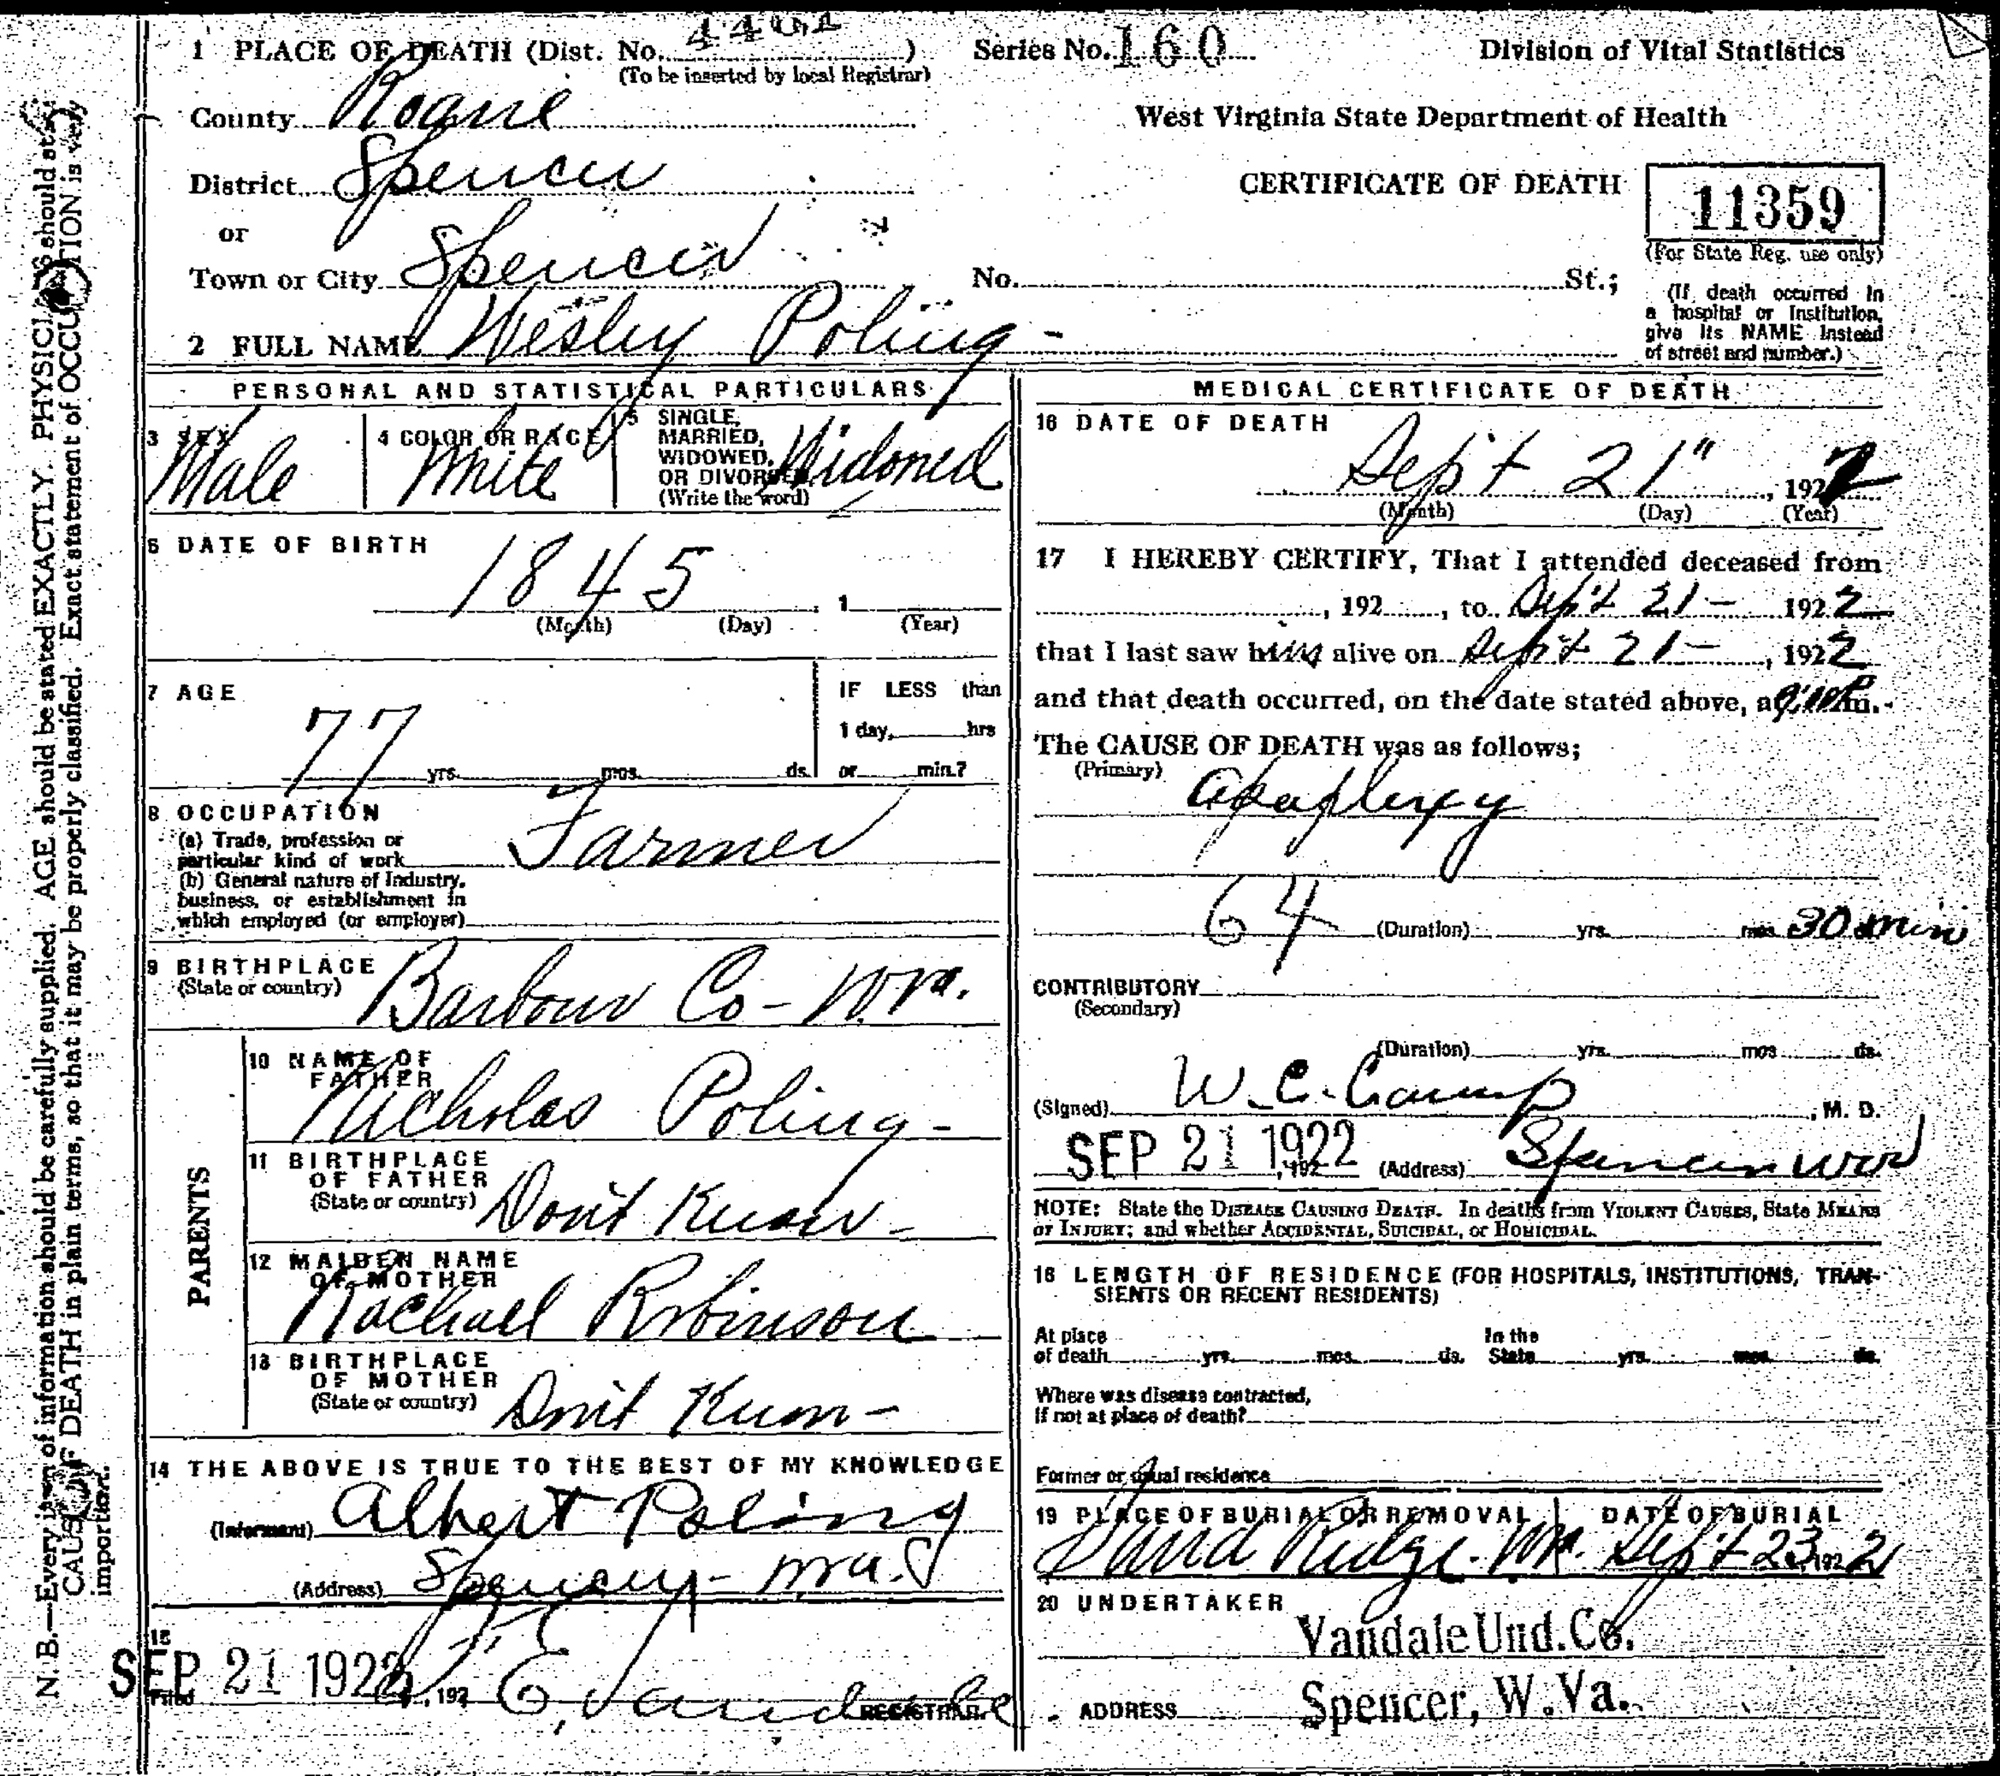 1 PLACE OF DEATH (Dist. No. ) Series No. 160 Division of Vital Statistics
(To be inserted by local Registrar)
County Roane West Virginia State Department of Health
District Spencer CERTIFICATE OF DEATH 11359
(For State Reg. use only)
or
Town or City Spencer No. St.;
(If death occurred in
a hospital or Institution,
give its NAME instead
of street and number.)
2 FULL NAME Wesley Poling -
PERSONAL AND STATISTICAL PARTICULARS
3 SEX Male
4 COLOR OR RACE White
5 SINGLE,
MARRIED,
WIDOWED,
OR DIVORCED
(Write the word)
Widowed
6 DATE OF BIRTH
1845 , 1
(Month) (Day) (Year)
7 AGE
77 yrs. mos. ds.
IF LESS than
1 day, hrs
or min.?
8 OCCUPATION
(a) Trade, profession or
particular kind of work Farmer
(b) General nature of Industry,
business, or establishment in
which employed (or employer)
9 BIRTHPLACE
(State or country) Barbour Co - W.Va.
PARENTS
10 NAME OF
FATHER
Nicholas Poling -
11 BIRTHPLACE
OF FATHER
(State or country) Don't Know -
12 MAIDEN NAME
OF MOTHER
Rachael Robinson
13 BIRTHPLACE
OF MOTHER
(State or country) Don't Know -
14 THE ABOVE IS TRUE TO THE BEST OF MY KNOWLEDGE
(Informant) Albert Poling
(Address) Spencer - W.Va.
15
SEP 21 1922
Filed , 192 Vandale REGISTRAR.
MEDICAL CERTIFICATE OF DEATH
16 DATE OF DEATH
Sept 21" , 1922
(Month) (Day) (Year)
17 I HEREBY CERTIFY, That I attended deceased from
, 192 , to Sept 21 - 1922
that I last saw him alive on Sept 21 - , 1922
and that death occurred, on the date stated above, at m.
The CAUSE OF DEATH was as follows;
(Primary)
Apaplexy
64 (Duration) yrs. mos. 30 min
CONTRIBUTORY
(Secondary)
(Duration) yrs. mos ds.
(Signed) W. C. Camp , M. D.
SEP 21 1922 , 192 (Address) Spencer WVa
NOTE: State the DISEASE CAUSING DEATH. In deaths from VIOLENT CAUSES, State MEANS
OF INJURY; and whether ACCIDENTAL, SUICIDAL, or HOMICIDAL.
18 LENGTH OF RESIDENCE (FOR HOSPITALS, INSTITUTIONS, TRAN-
SIENTS OR RECENT RESIDENTS)
At place In the
of death yrs. mos. ds. State yrs. mos. ds.
Where was disease contracted,
If not at place of death?
Former or usual residence
19 PLACE OF BURIAL OR REMOVAL DATE OF BURIAL
Ridge. W.Va. Sept 23, 1922
20 UNDERTAKER
Vandale Und. Co.
ADDRESS Spencer, W.Va.
N. B.—Every item of information should be carefully supplied. AGE should be stated EXACTLY. PHYSICIANS should state
CAUSE OF DEATH in plain terms, so that it may be properly classified. Exact statement of OCCUPATION is very
important.